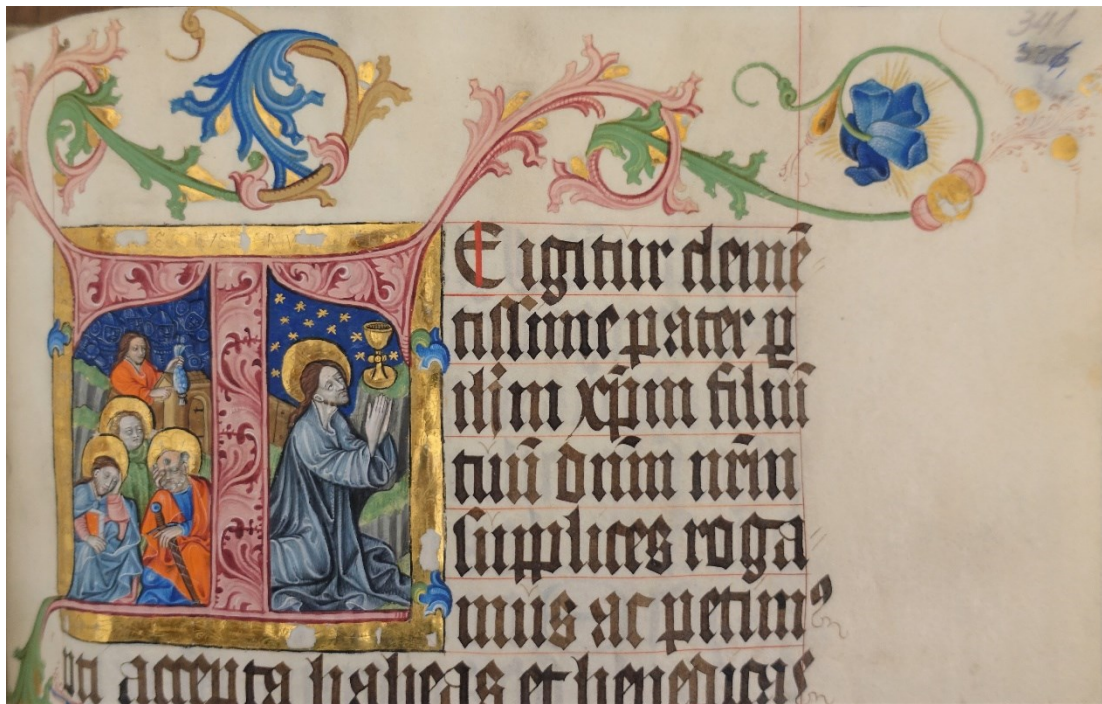 341
TE igitur clemē
tissime pater ꝑ
ihm̄ xp̄m filiū
tuū dn̄m nr̄m
supplices roga
mus ac petimꝰ
uti accepta habeas et benedicas